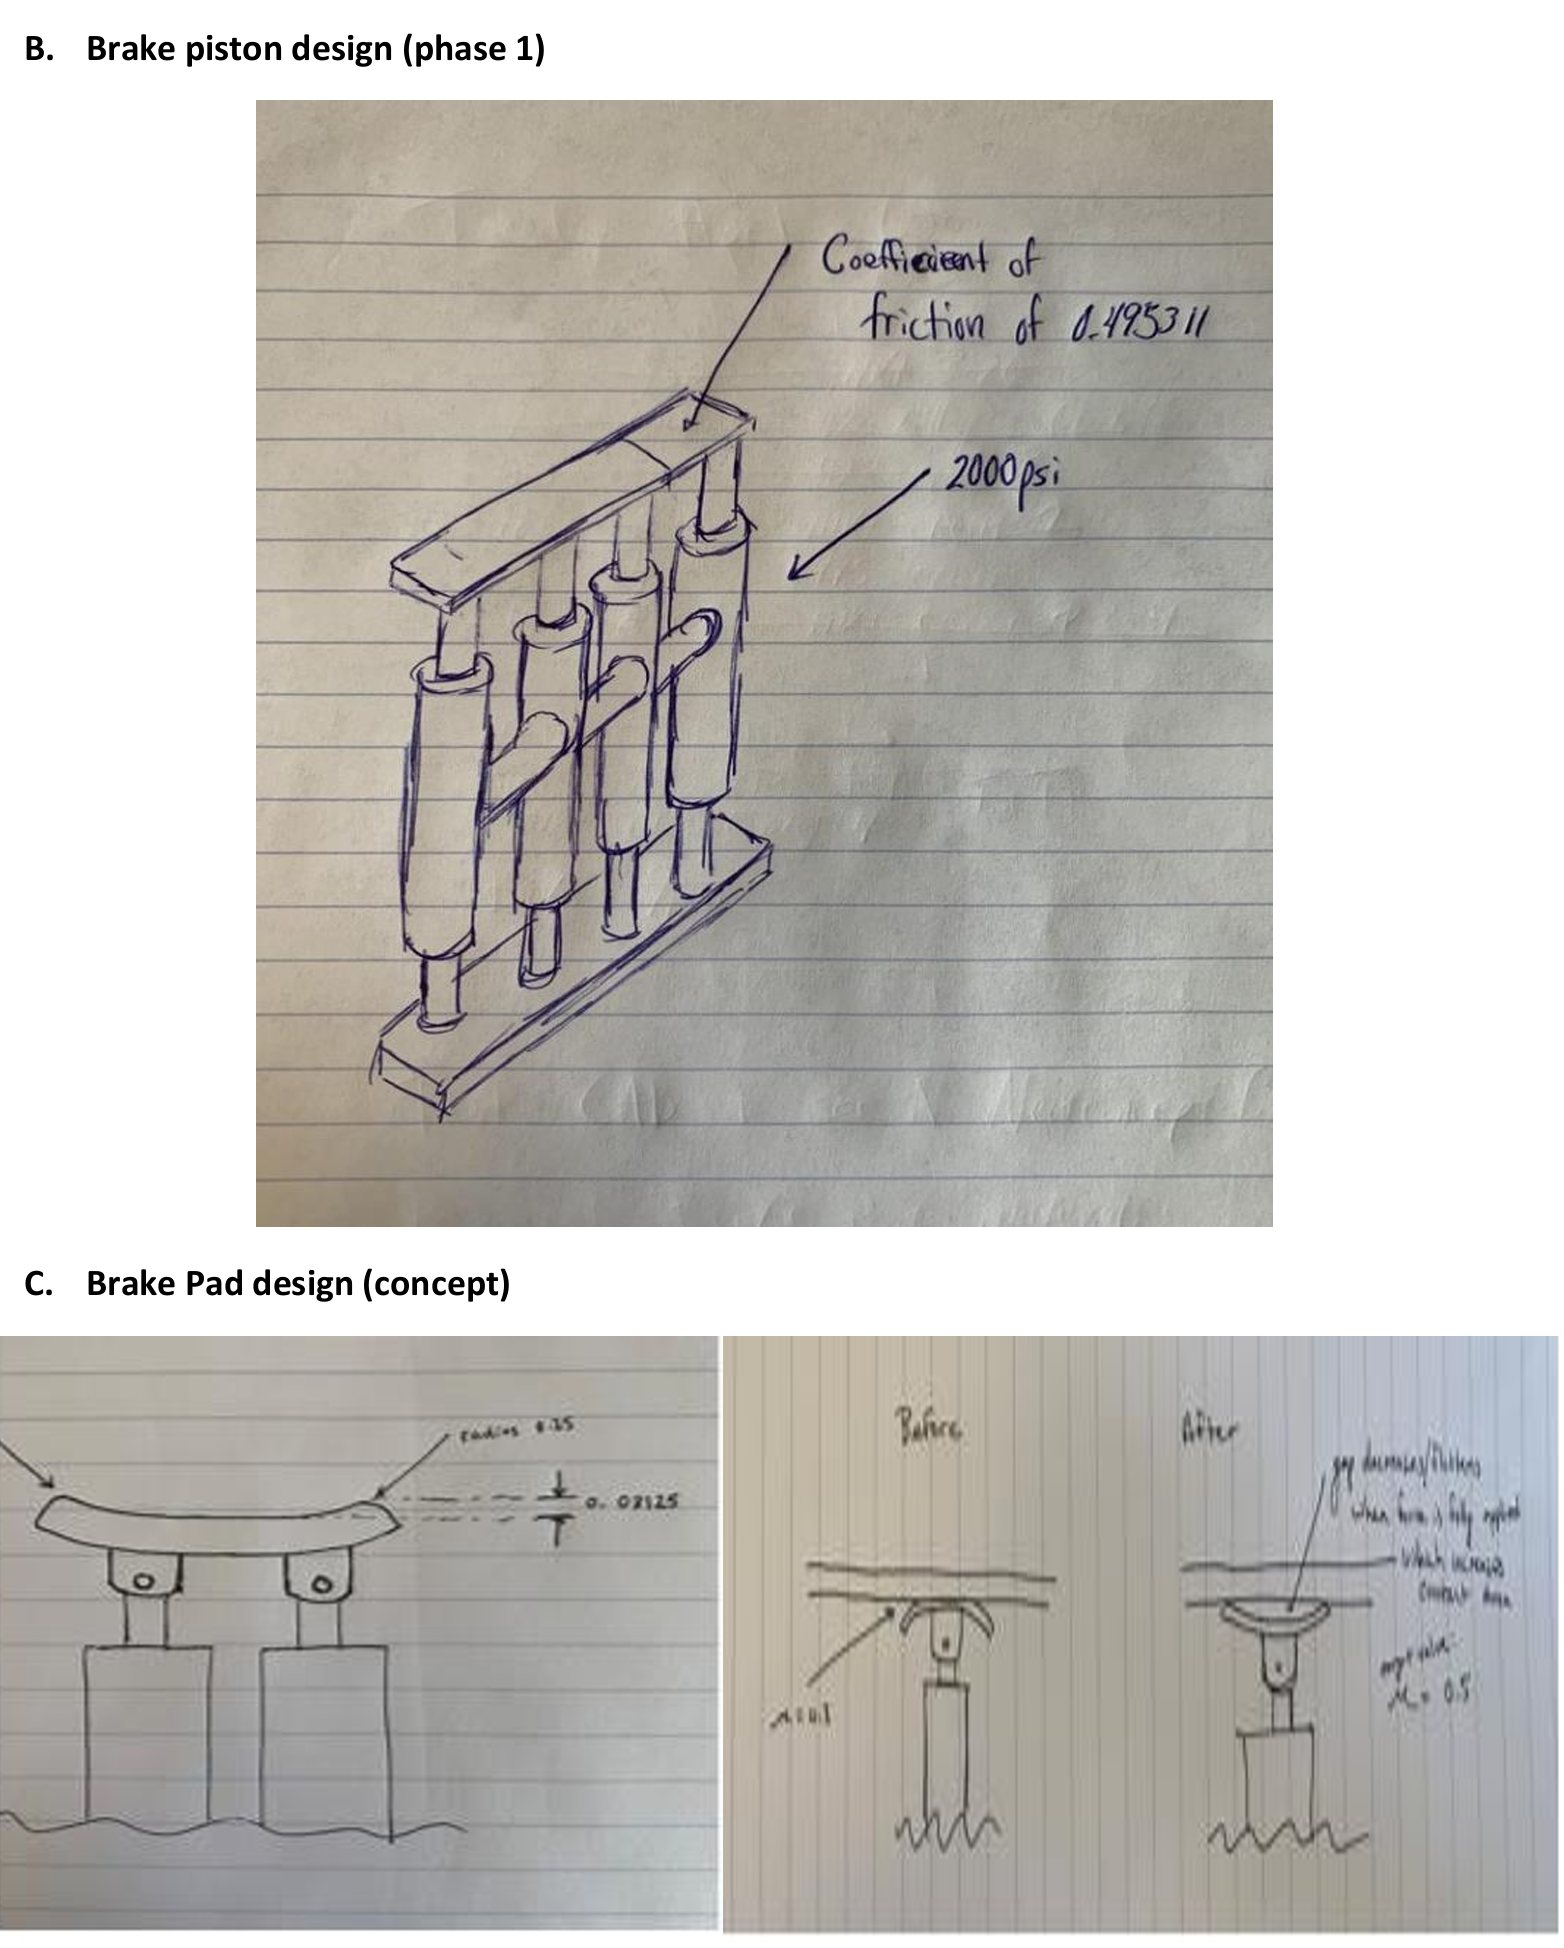 B. Brake piston design (phase 1)
Coefficient of
friction of 0.495311
2000psi
C. Brake Pad design (concept)
radius 0.25
0.03125
Before
After
gap decreases/flattens
when force is fully applied
which increases
contact area
μ = 0.5